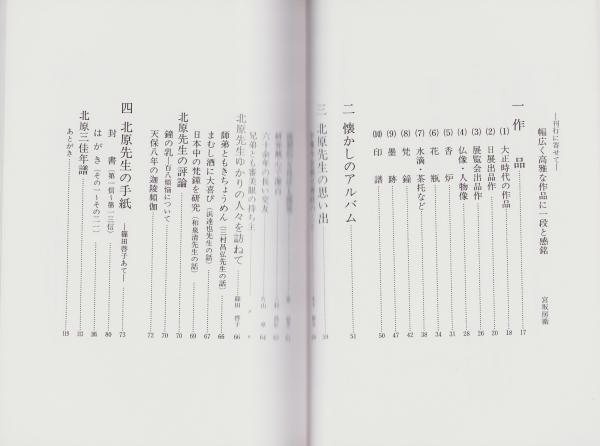 ―刊行に寄せて―
幅広く高雅な作品に一段と感銘 宮坂房衛
一 作品 17
(1) 大正時代の作品 18
(2) 日展出品作 20
(3) 展覧会出品作 26
(4) 仏像・人物像 28
(5) 香炉 31
(6) 花瓶 34
(7) 水滴・茶托など 38
(8) 梵鐘 42
(9) 墨跡 47
(10) 印譜 50
二 懐かしのアルバム 51
三 北原先生の思い出 59
兄弟とも審美眼の持ち主
北原先生ゆかりの人々を訪ねて 篠田啓子 66
師弟ともきちょうめん(三村昌弘先生の話) 66
まむし酒に大喜び(浜達也先生の話) 67
日本中の梵鐘を研究(和泉清先生の話) 69
北原先生の評論 70
鐘の乳―百八煩悩について 70
天保八年の迦陵頻伽 72
四 北原先生の手紙 ―篠田啓子あて― 73
封書(第一信~第一三信) 80
はがき(その一~その二一) 96
北原三佳年譜 113
あとがき 119